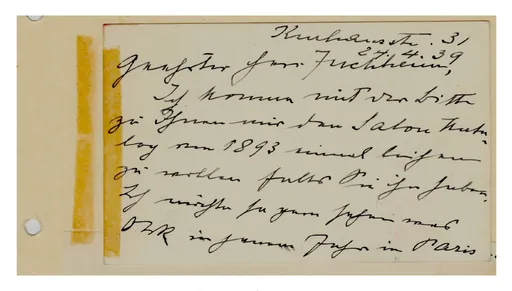 Kurhausstr. 31
24.4.39
Geehrter Herr
Ich komme mit der Bitte
zu Ihnen mir den Salon Kata-
log von 1893 einmal leihen
zu wollen falls Sie ihn haben.
Ich möchte so gern sehen was
in jenem Jahr in Paris